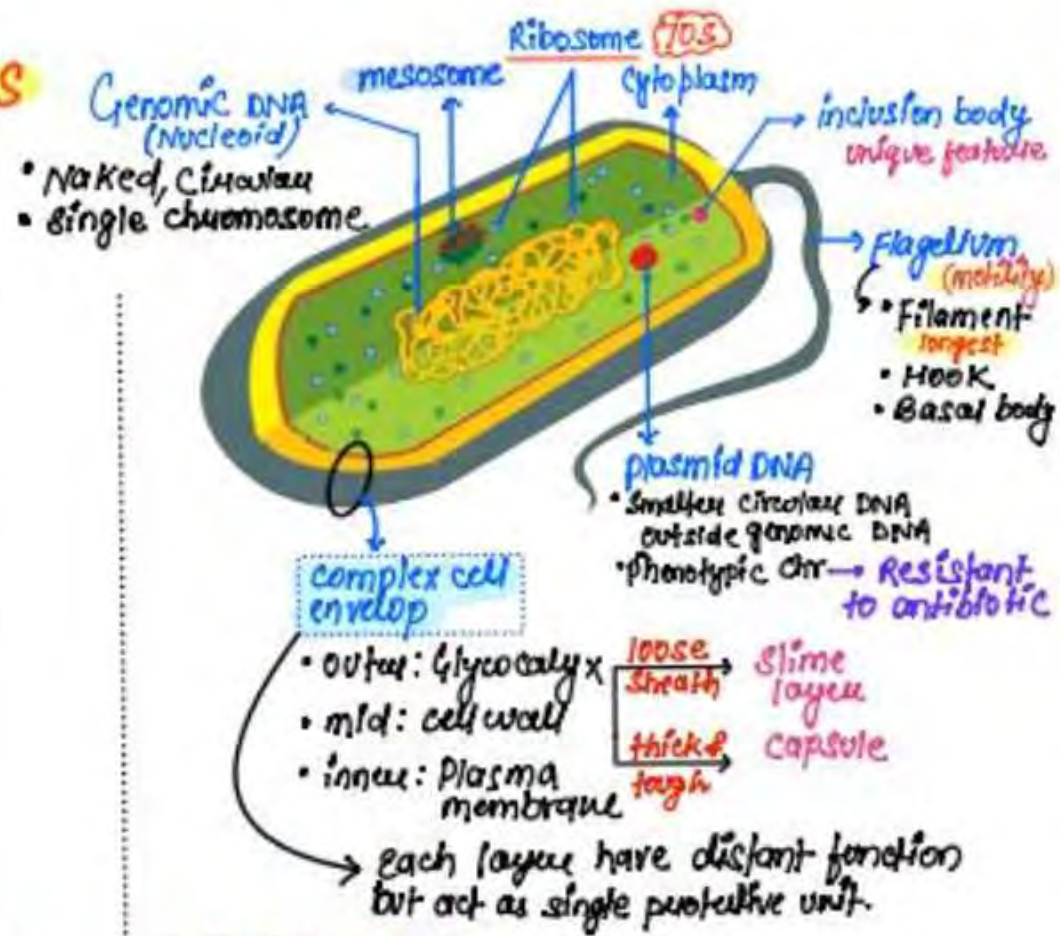 S
Genomic DNA
(Nucleoid)
• Naked, Circular
• Single chromosome
mesosome
Ribosome 70S
Cytoplasm
inclusion body
unique feature
Flagellum
(motility)
• Filament
longest
• Hook
• Basal body
plasmid DNA
• Smaller circular DNA
outside genomic DNA
• Phenotypic Chr → Resistant
to antibiotic
complex cell
envelop
• outer: Glycocalyx
loose
sheath
Slime
layer
• mid: cell wall
thick &
tough
capsule
• inner: Plasma
membrane
each layer have distant function
but act as single protective unit.